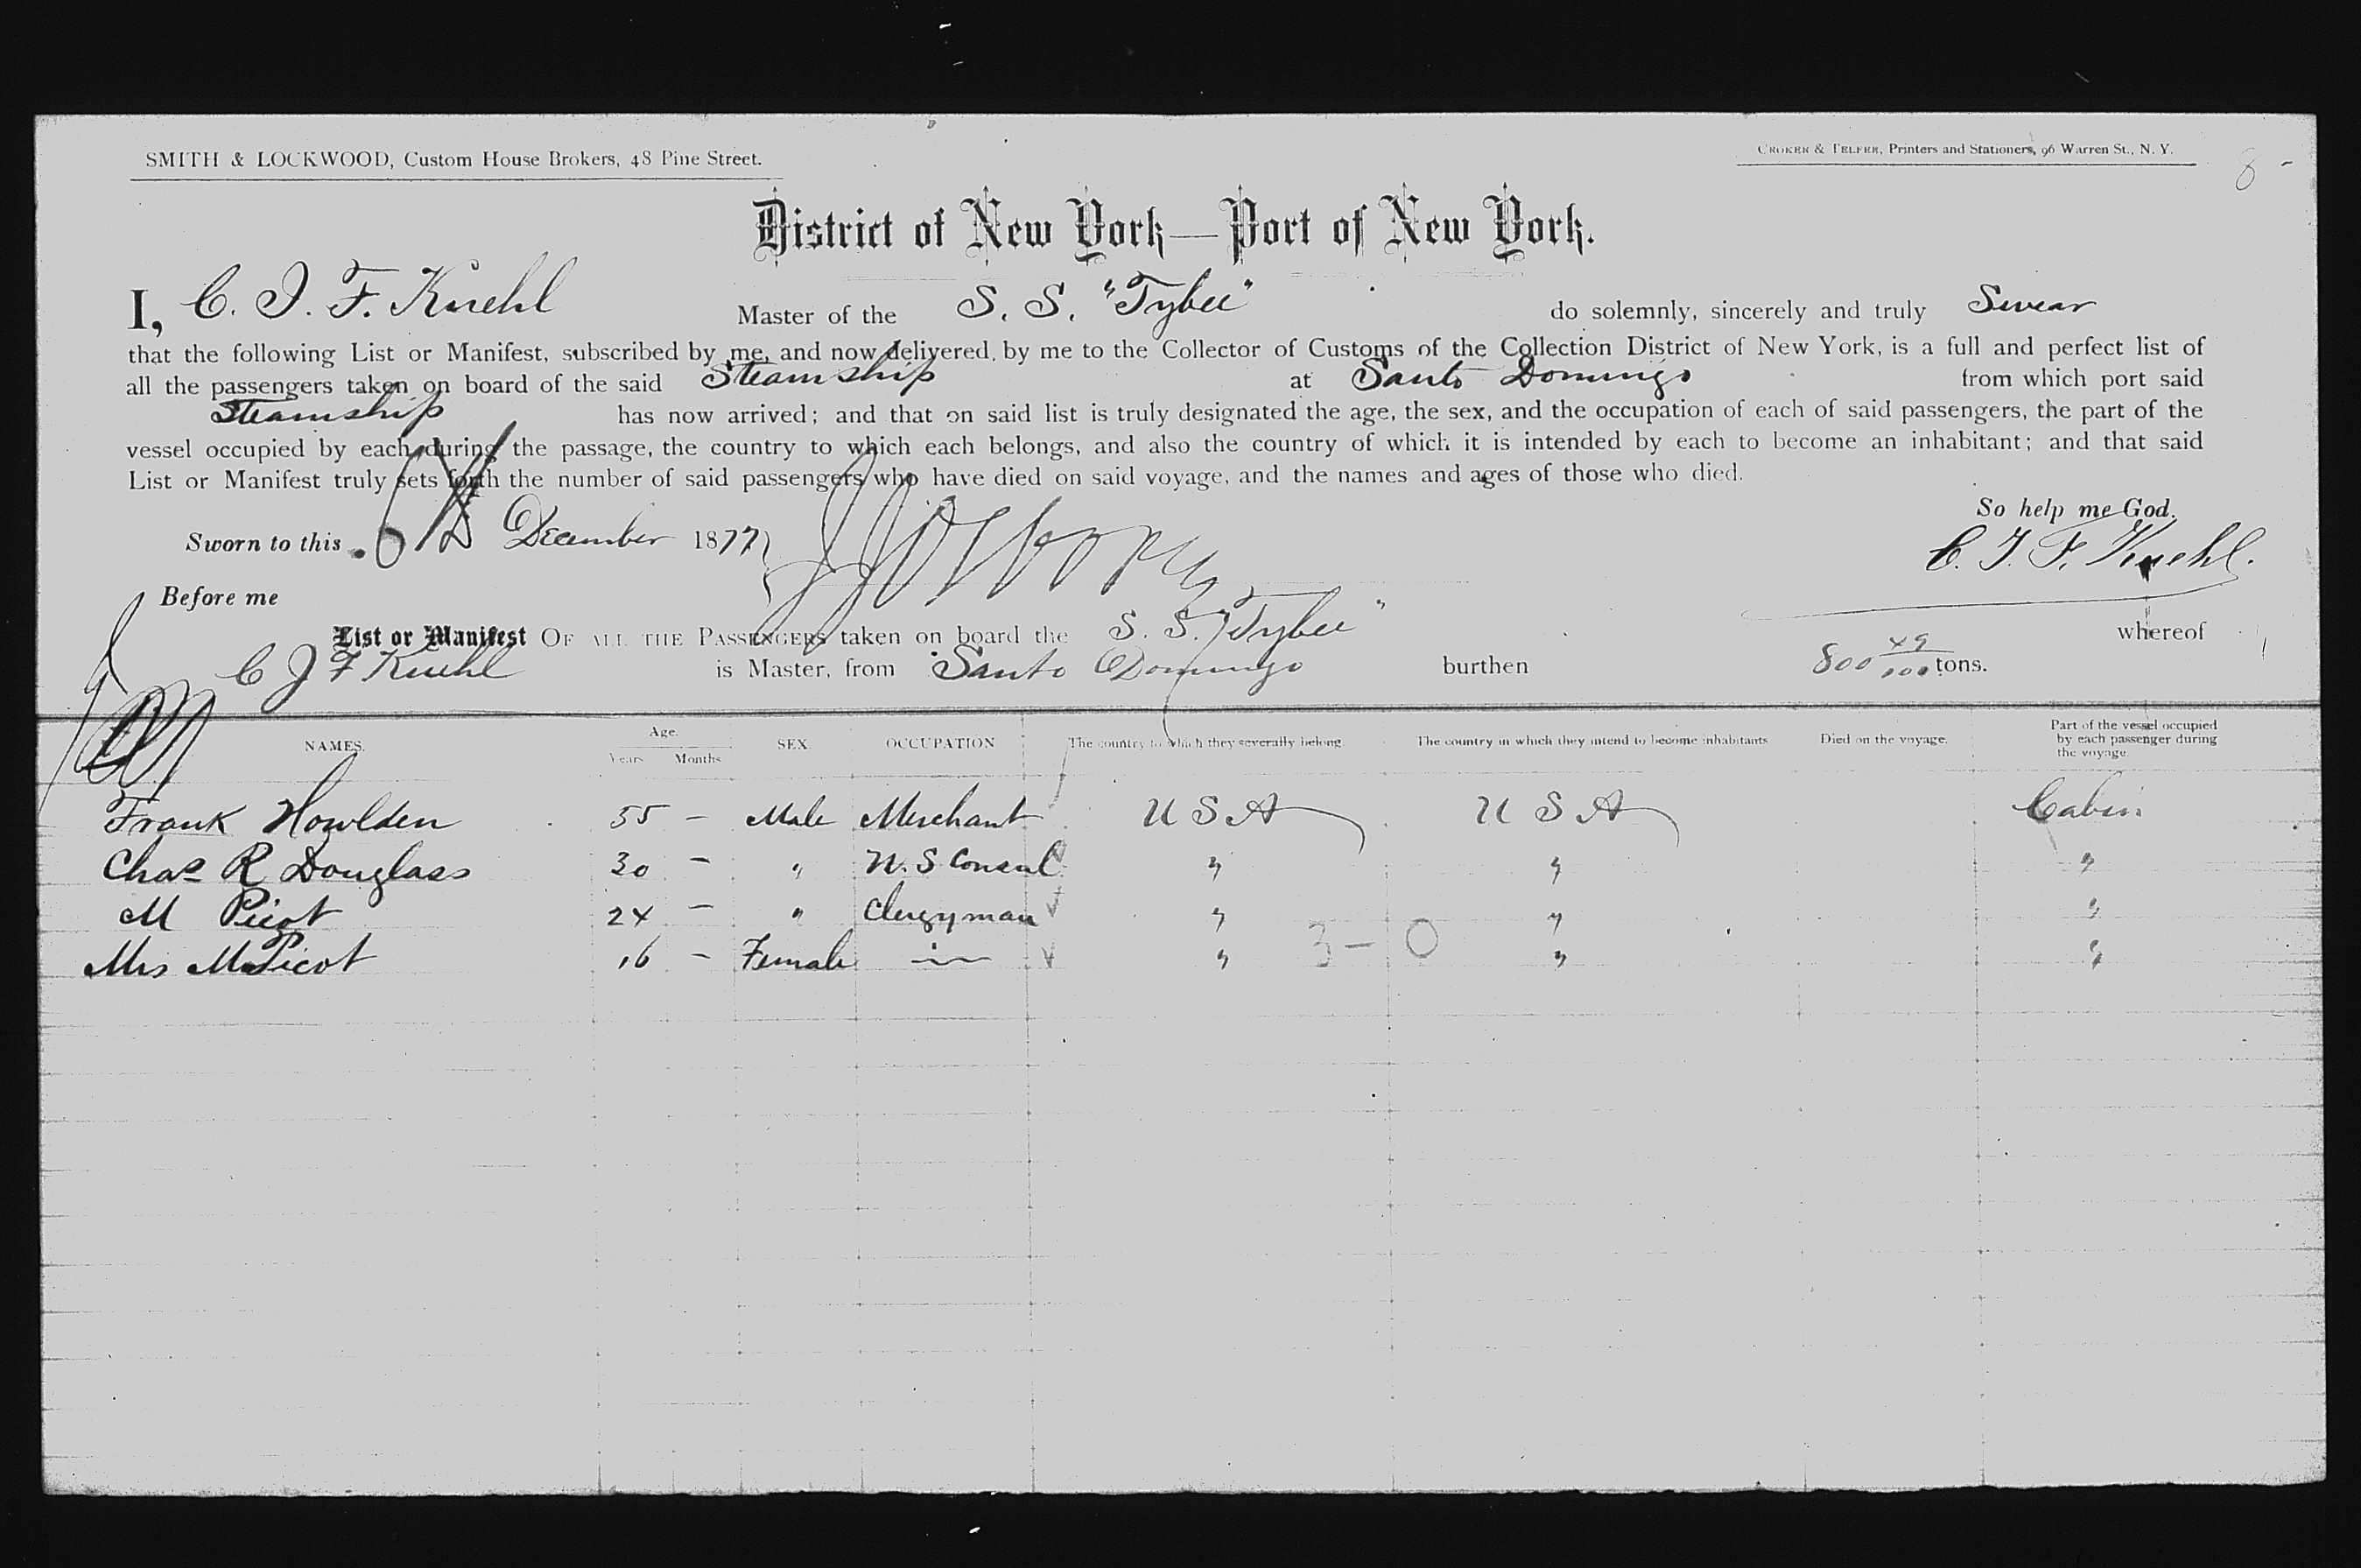 SMITH & LOCKWOOD, Custom House Brokers, 48 Pine Street.
CROKER & TELFER, Printers and Stationers, 96 Warren St., N. Y.
8 -
District of New York—Port of New York.
I, C. J. F. Kuehl Master of the S. S. "Tybee" do solemnly, sincerely and truly Swear
that the following List or Manifest, subscribed by me, and now delivered by me to the Collector of Customs of the Collection District of New York, is a full and perfect list of
all the passengers taken on board of the said Steamship at Santo Domingo from which port said
Steamship has now arrived; and that on said list is truly designated the age, the sex, and the occupation of each of said passengers, the part of the
vessel occupied by each during the passage, the country to which each belongs, and also the country of which it is intended by each to become an inhabitant; and that said
List or Manifest truly sets forth the number of said passengers who have died on said voyage, and the names and ages of those who died.
So help me God.
Sworn to this December 1877
C. J. F. Kuehl.
Before me
List or Manifest OF ALL THE PASSENGERS taken on board the S. S. "Tybee" whereof
C J F Kuehl is Master, from Santo Domingo burthen 800 49/100 tons.
NAMES. Age. Years Months SEX OCCUPATION The country to which they severally belong. The country in which they intend to become inhabitants Died on the voyage. Part of the vessel occupied by each passenger during the voyage.
Frank Howlden 55 — Male Merchant U S A U S A Cabin
Chas R Douglass 30 — " U. S Consul " " "
M Picot 24 — " Clergyman " " "
Mrs M Picot 16 — Female — " 3 - 0 " "